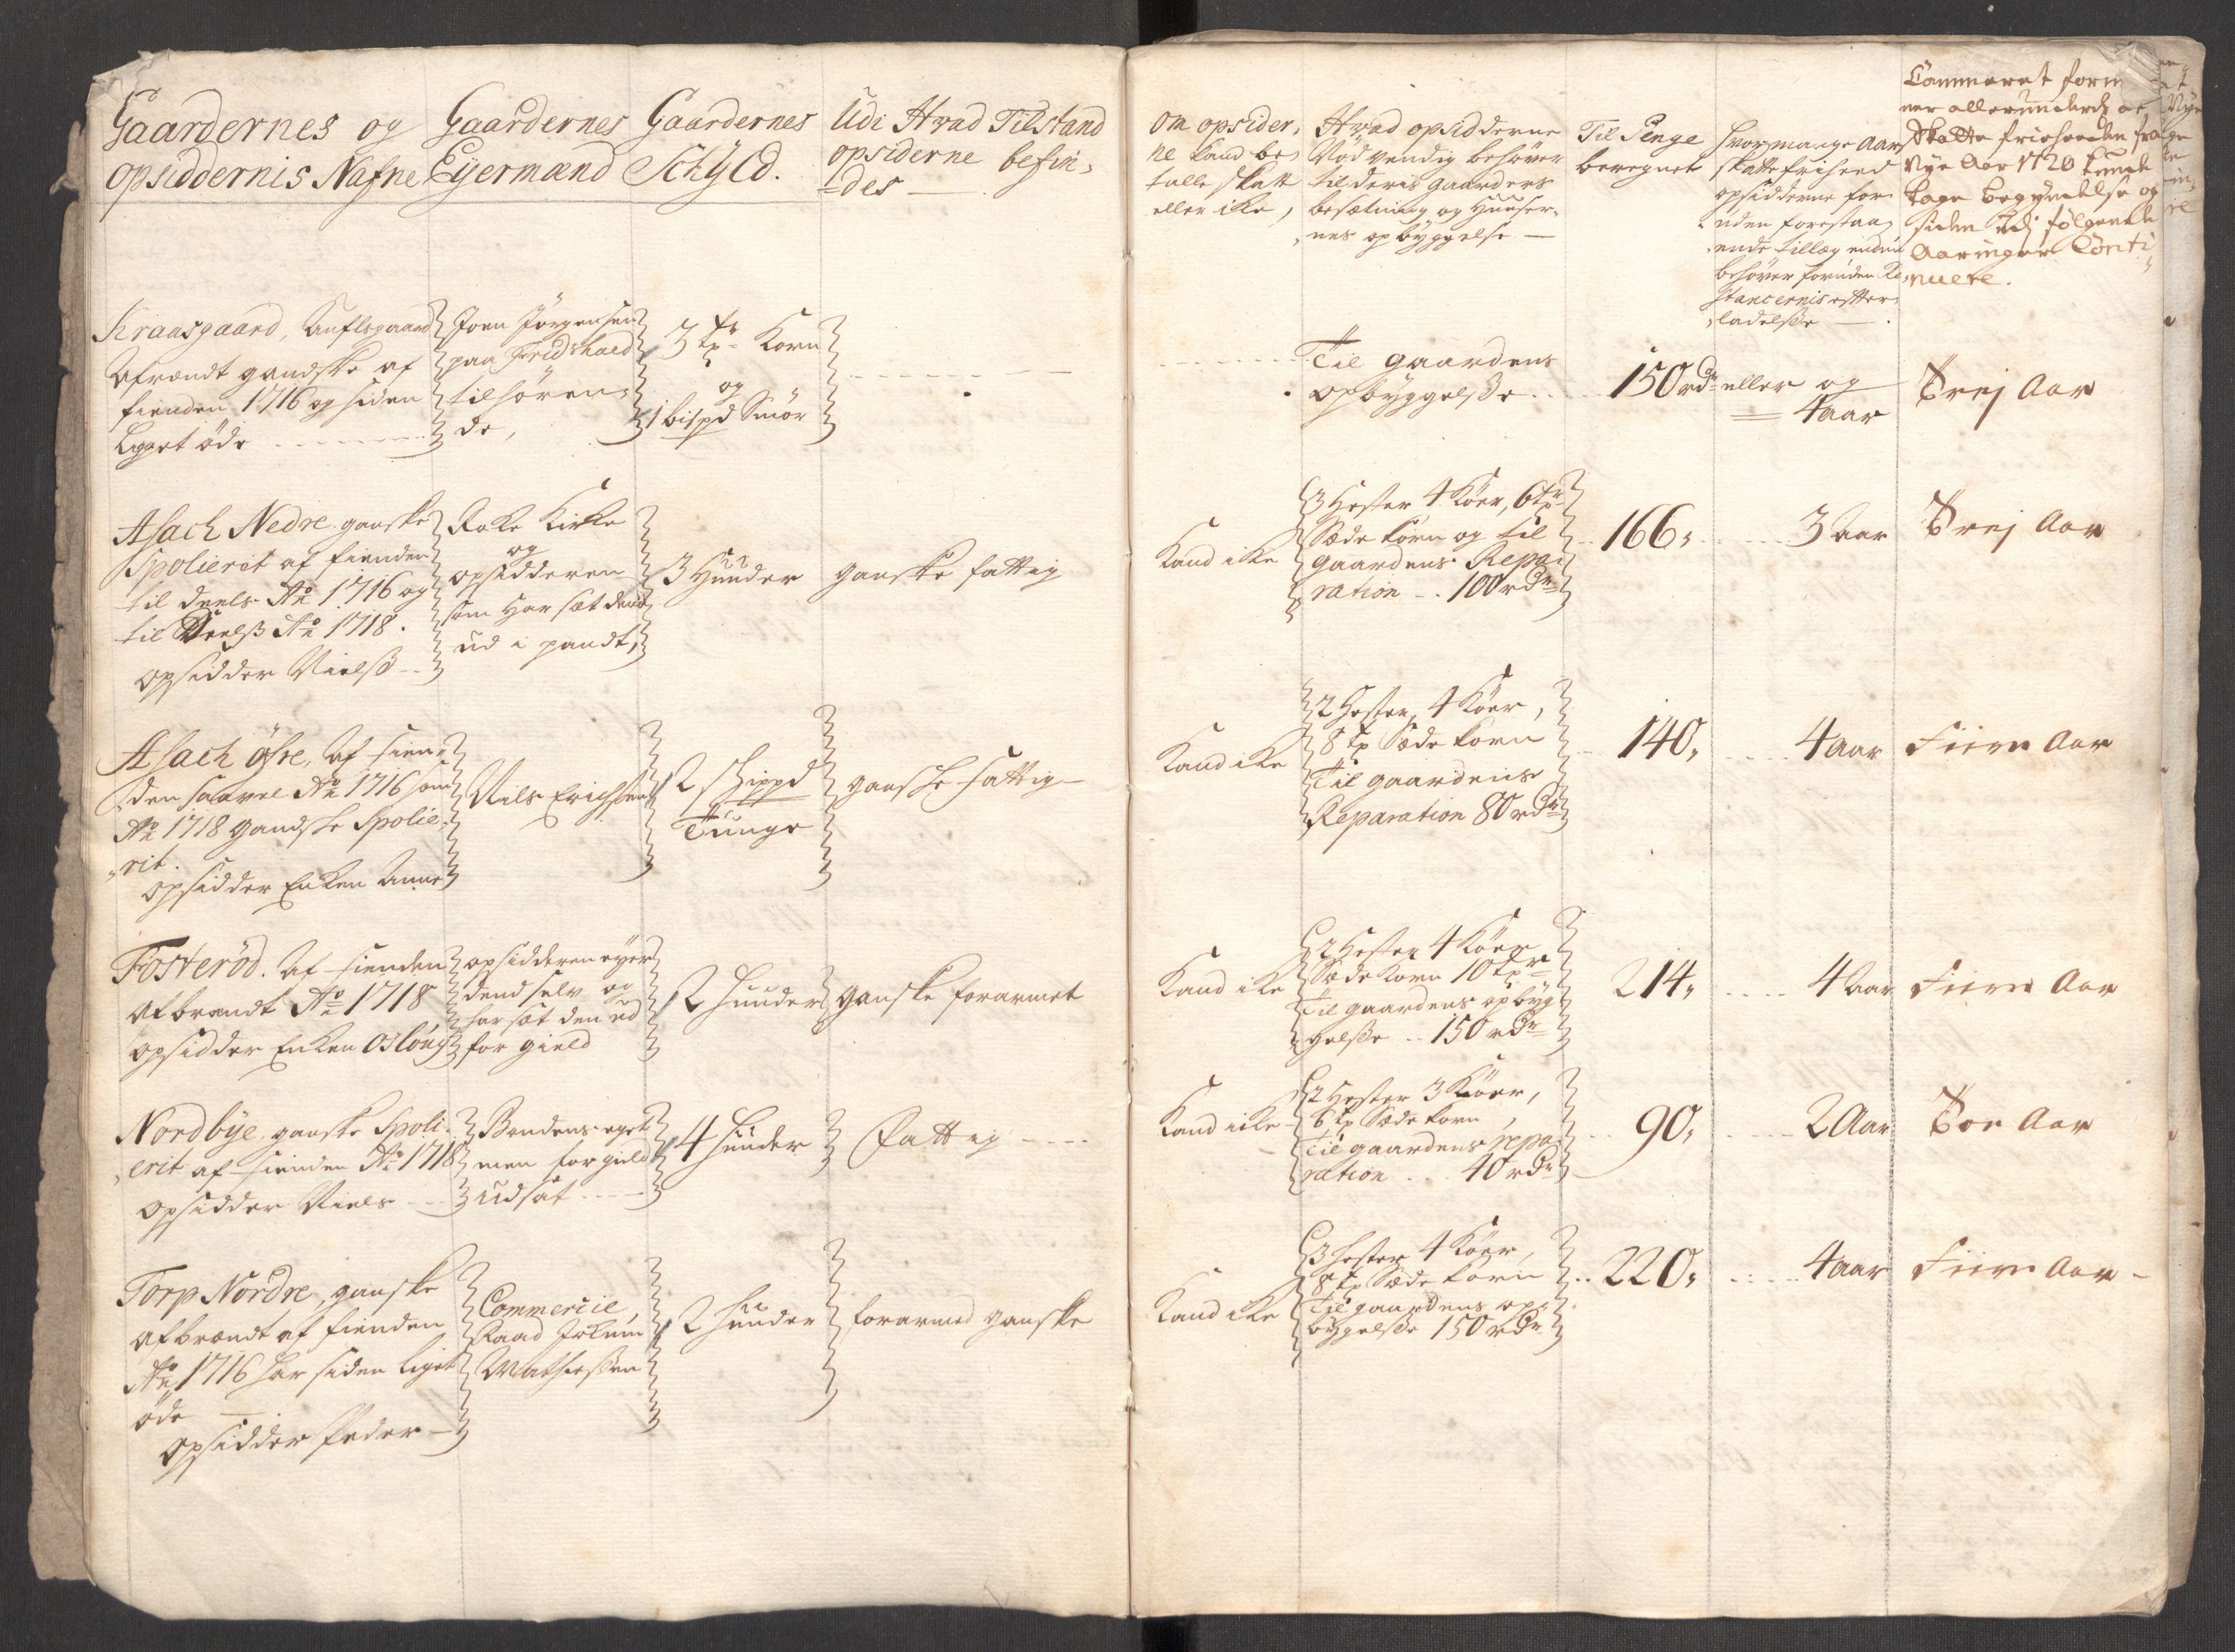 Gaardernes og
opsiddernis Nafne
Gaardernes
Eyermænd
Gaardernes
Schyld.
Udi Hvad Tilstand
opsiderne befin,
=des
Om opsider,
ne kand be
talle skatt
eller ike,
Hvad opsidderne
Nødvendig behøver
til deris gaarders
besætning og Huuser,
nes opbyggelse —
Til Penge
beregnet
Hvormange aar
skattefrihed
opsidderne for
uden forestaa,
ende tillæg endnu
behøver foruden Re,
stancernis efter,
ladelsse —
Cammeret form
ner allerunderd: at
Skatte friheeden fra
Nye Aar 1720 kunde
tage begyndelse og
siden udj følgende
Aaringer Conti,
nuere.
Kraasgaard, Auflsgaard
Afbrændt gandske af
fienden 1716 og siden
ligget øde
Joen Jørgensen
paa Fridshald
tilhøren,
de,
3 tr Korn
og
1 bispd Smør
Til gaardens
opbyggelsse
150 rdr
eller og
4 aar
Trej Aar
Asach Nedre ganske
Spolierit af fienden
til deels Ao 1716 og
til Deelss Ao 1718.
opsidder Nielss
Roke Kirke
og
opsidderen
som Har sat dend
ud i pandt,
3 Huuder
ganske fattig
Kand ike
3 Hester 4 Köer, 6 tr
Sæde korn og til
gaardens Repa,
ration .. 100 rdr
166,
3 Aar
Trej Aar
Asach öfre, Af fien,
,den saavel Ao 1716 som
Ao 1718 gandske Spolie,
,rit.
opsidder Enken Anne
Niels Erichsen
2 shippd
Tunge
ganske fattig
Kand ike
2 Hester, 4 Köer,
8 tr Sæde korn
Til gaardens
Reparation 80 rdr
140,
4 aar
Fiire Aar
Fosterød. Af fienden
afbrændt Ao 1718
opsidder Enken Oslöug
opsidderen eyer
dend selv og
har sat den ud
for gield
2 huuder
ganske forarmet
Kand ike
2 Hester 4 Köer
Sæde korn 10 tr
Til gaardens opbyg
gelsse .. 150 rdr
214,
4 Aar
Fiire Aar
Nordbÿe, ganske Spoli,
,erit af fienden Ao 1718
opsidder Niels
Bondens eget
men for gield
udsat
4 huuder
Fattig
Kand icke
2 Hester 3 Köer,
6 tr Sæde korn,
Til gaardens repa,
ration ... 40 rdr
90,
2 Aar
Toe Aar
Torp Nordre, ganske
afbrændt af fienden
Ao 1716 har siden liget
öde —
opsidder Peder —
Commercie,
Raad Jokum
Mathiessen
2 huuder
forarmed ganske
Kand ike
3 hester 4 Köer,
8 tr Sæde korn
Til gaardens op,
byggelsse 150 rdr
220,
4 aar
Fiire Aar